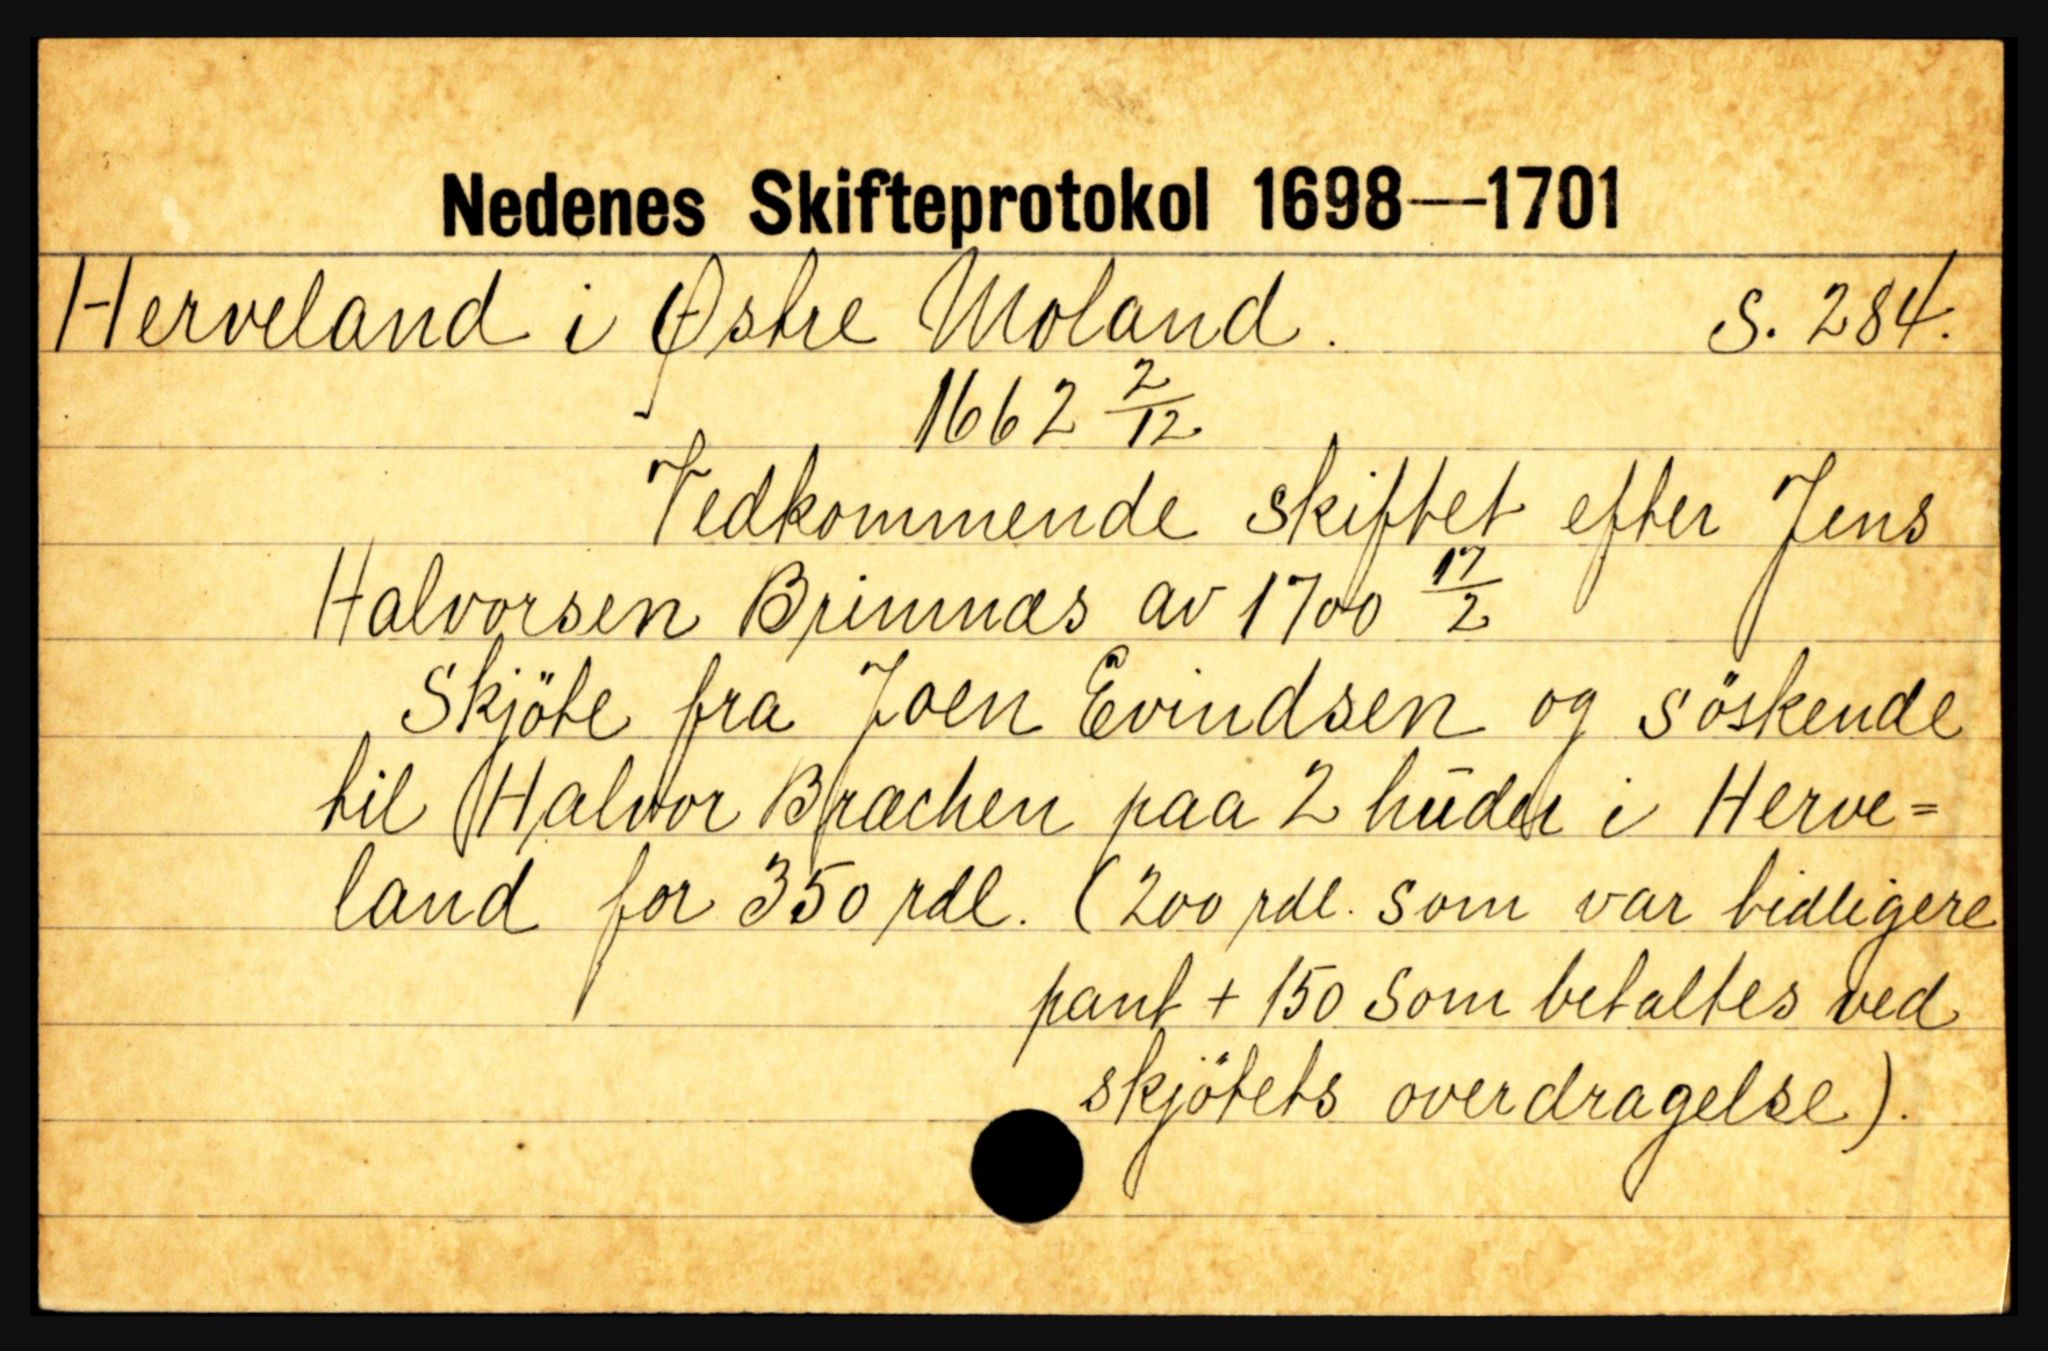 Nedenes Skifteprotokol 1698—1701
Herveland i Østre Moland. S. 284.
1662 2/12
Vedkommende skiftet efter Jens
Halvorsen Brimnæs av 1700 17/2
Skjöte fra Joen Evindsen og söskende
til Halvor Bræchen paa 2 huder i Herve=
land for 350 rdl. (200 rdl. som var tidligere
pant + 150 som betaltes ved
skjötets overdragelse).